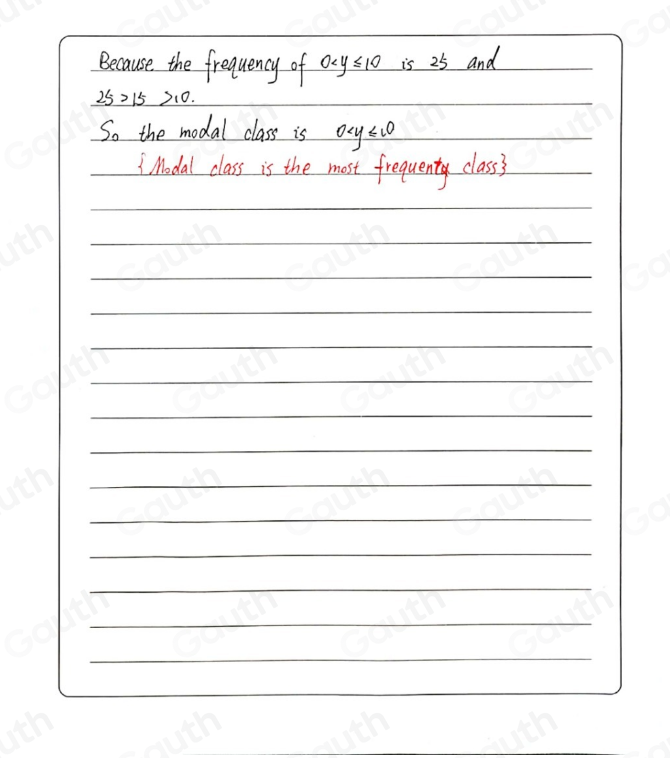 Because the frequency of 0<y≤10 is 25 and
25>15 >10.
So the modal class is 0<y≤10
{Modal class is the most frequenty class}
Gauth